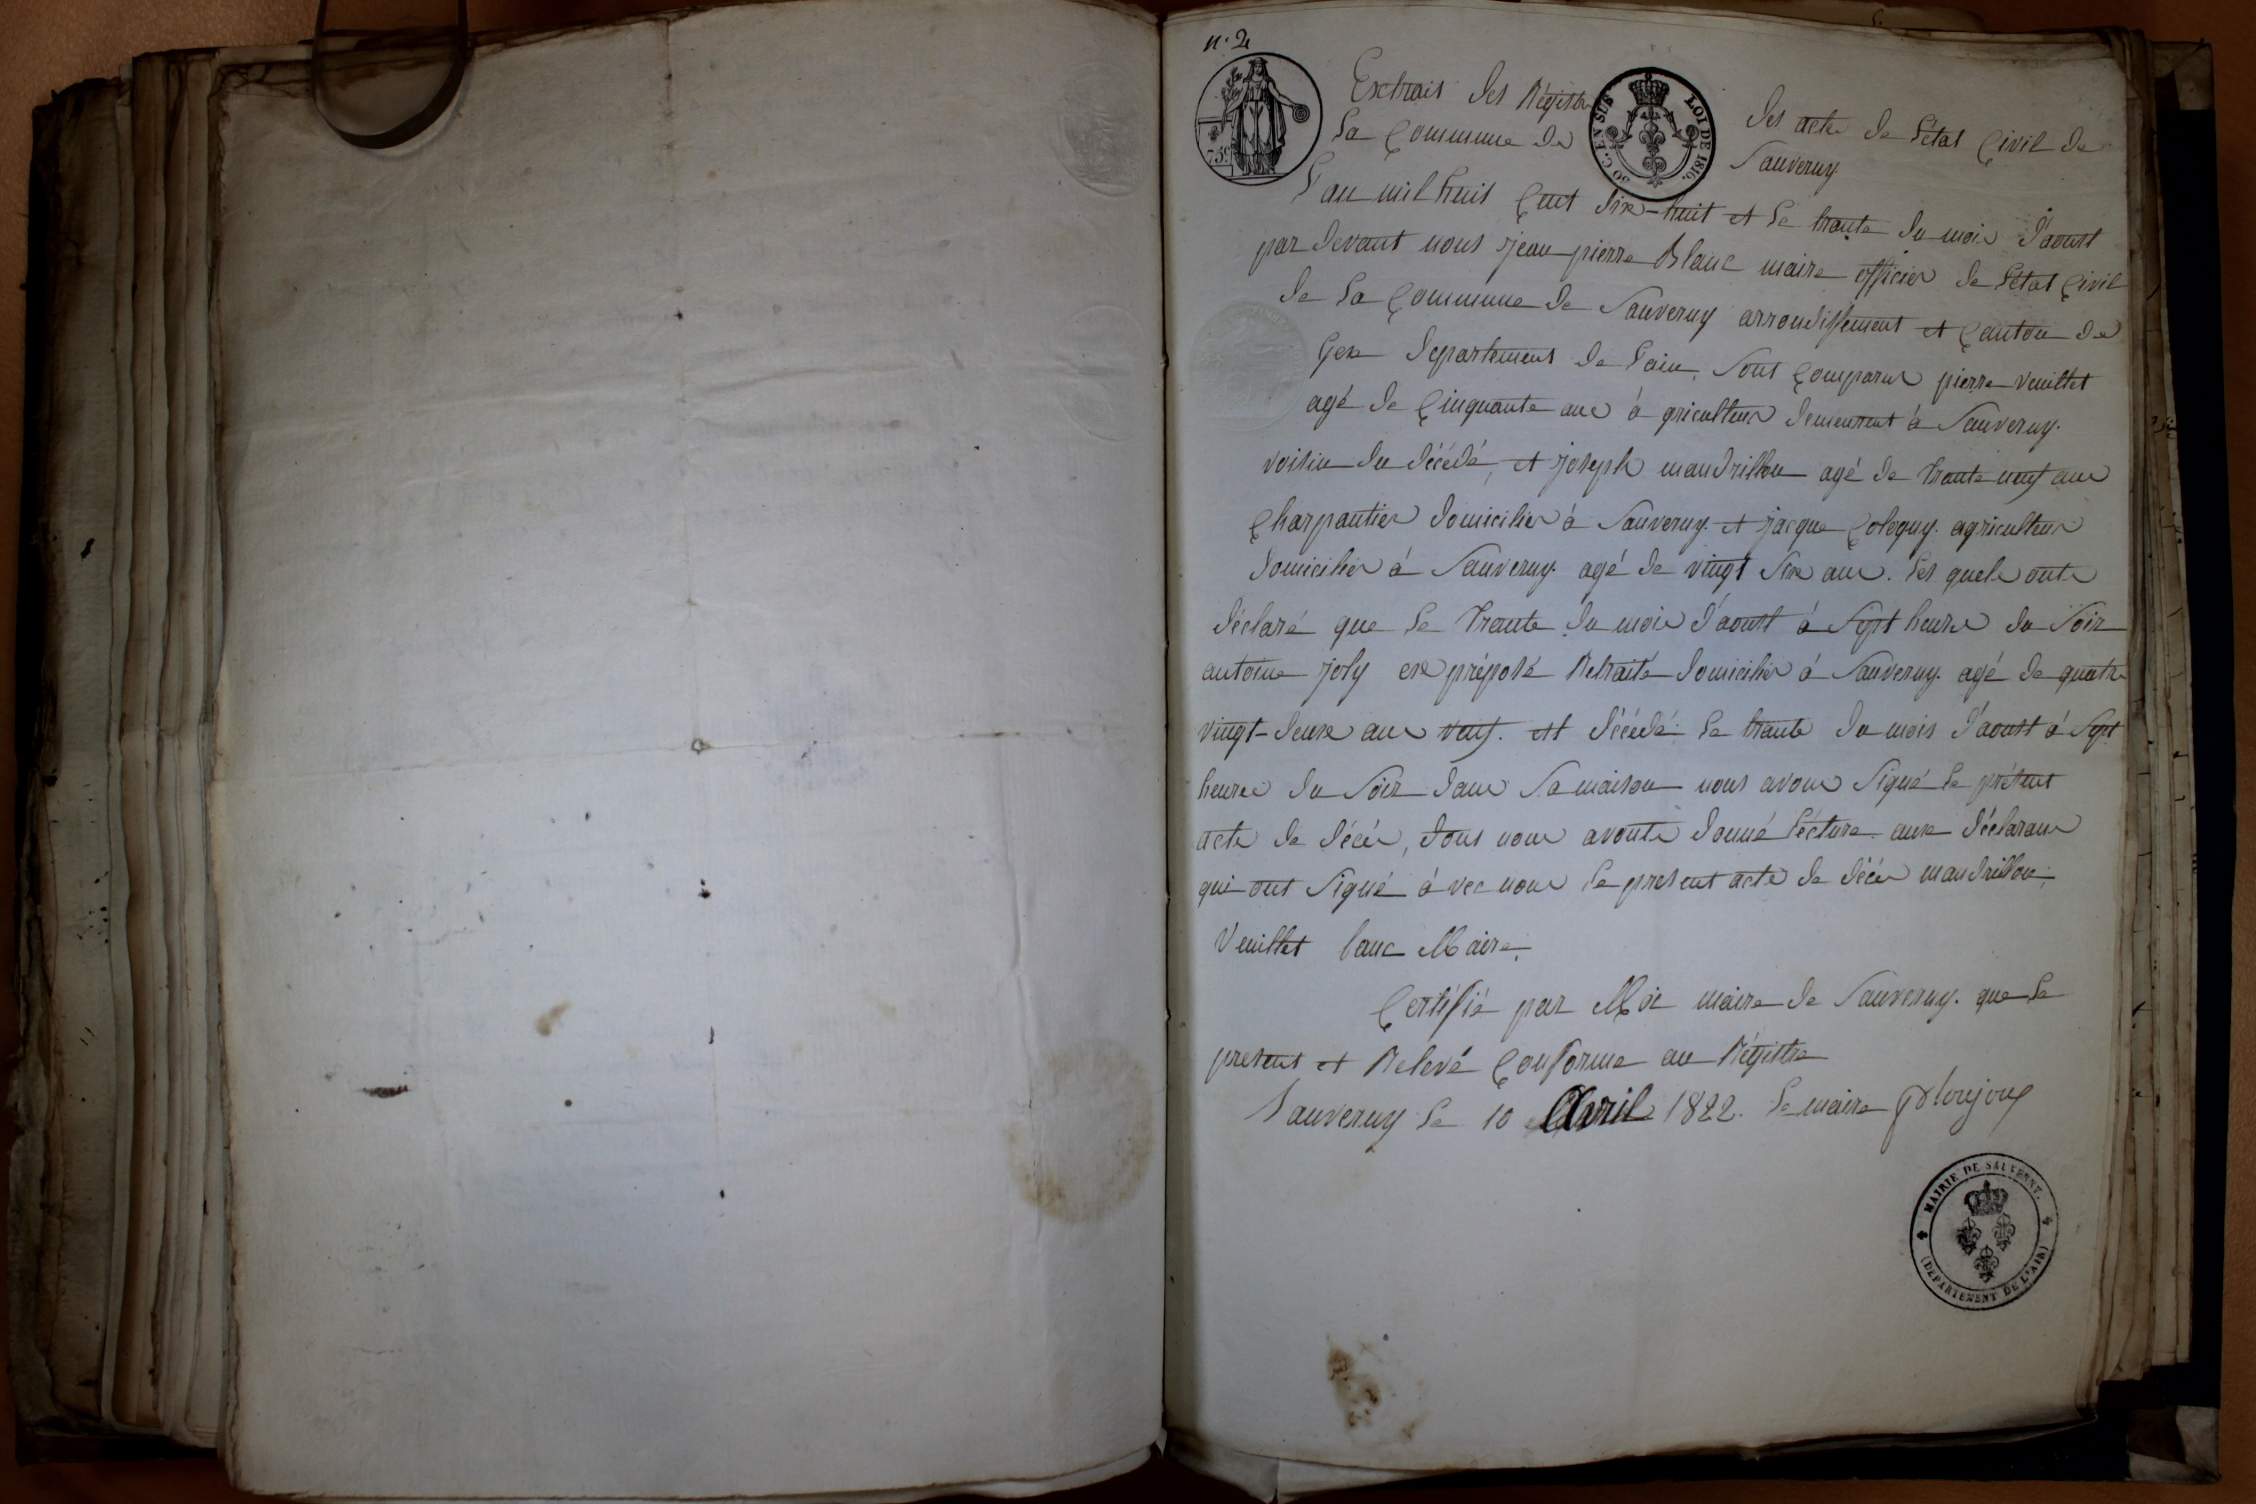 n.° 2
75 c.
50 C. EN SUS LOI DE 1816.
Extrais des Régistre des acte de l'état Civil de
La Commune de Sauverny
L'an mil huit Cent dix-huit et le trante du mois d'aoust
par devant nous jean pierre Blanc maire officier de l'état Civil
de La Commune de Sauverny arrondissement et Canton de
Gex departement de L'ain, sont Comparus pierre Veuillet
agé de Cinquante ans à griculteur demeurent à Sauverny.
voisin du décédé, et joseph mandrillon agé de trante neuf ans
Charpantier domicilier à Sauverny. et jacque Coleguy. agriculteur
domicilier à Sauverny. agé de vingt six ans. les quels onts
déclaré que le trante du mois d'aoust à Sept heures du Soir
antoine joly ex préposé Retraité domicilier à Sauverny. agé de quatre
vingt-deux ans veuf. est décédé le trante du mois d'aoust à Sept
heures du Soir dans Sa maison nous avons Signé le présent
acte de décès, dont nous avonts donné Lécture aux déclarans
qui ont Signé à vec nous le present acte de décès mandrillon,
Veuillet Banc Maire,
Certifié par Moi maire de Sauverny. que le
present et Relevé Conforme au Régistre
Sauverny le 10 Avril 1822. le maire
MAIRIE DE SAUVERNY.
(DEPARTEMENT DE L'AIN)